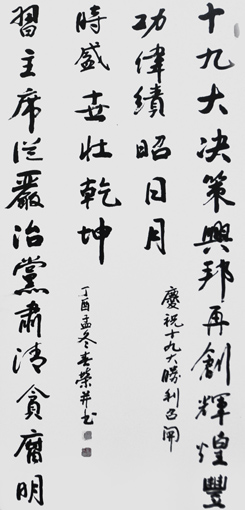 十九大决策興邦再創輝煌豐
功偉績昭日月
慶祝十九大勝利召開
習主席從嚴治黨肅清貪腐明
時盛世壯乾坤
丁酉孟冬榮并书